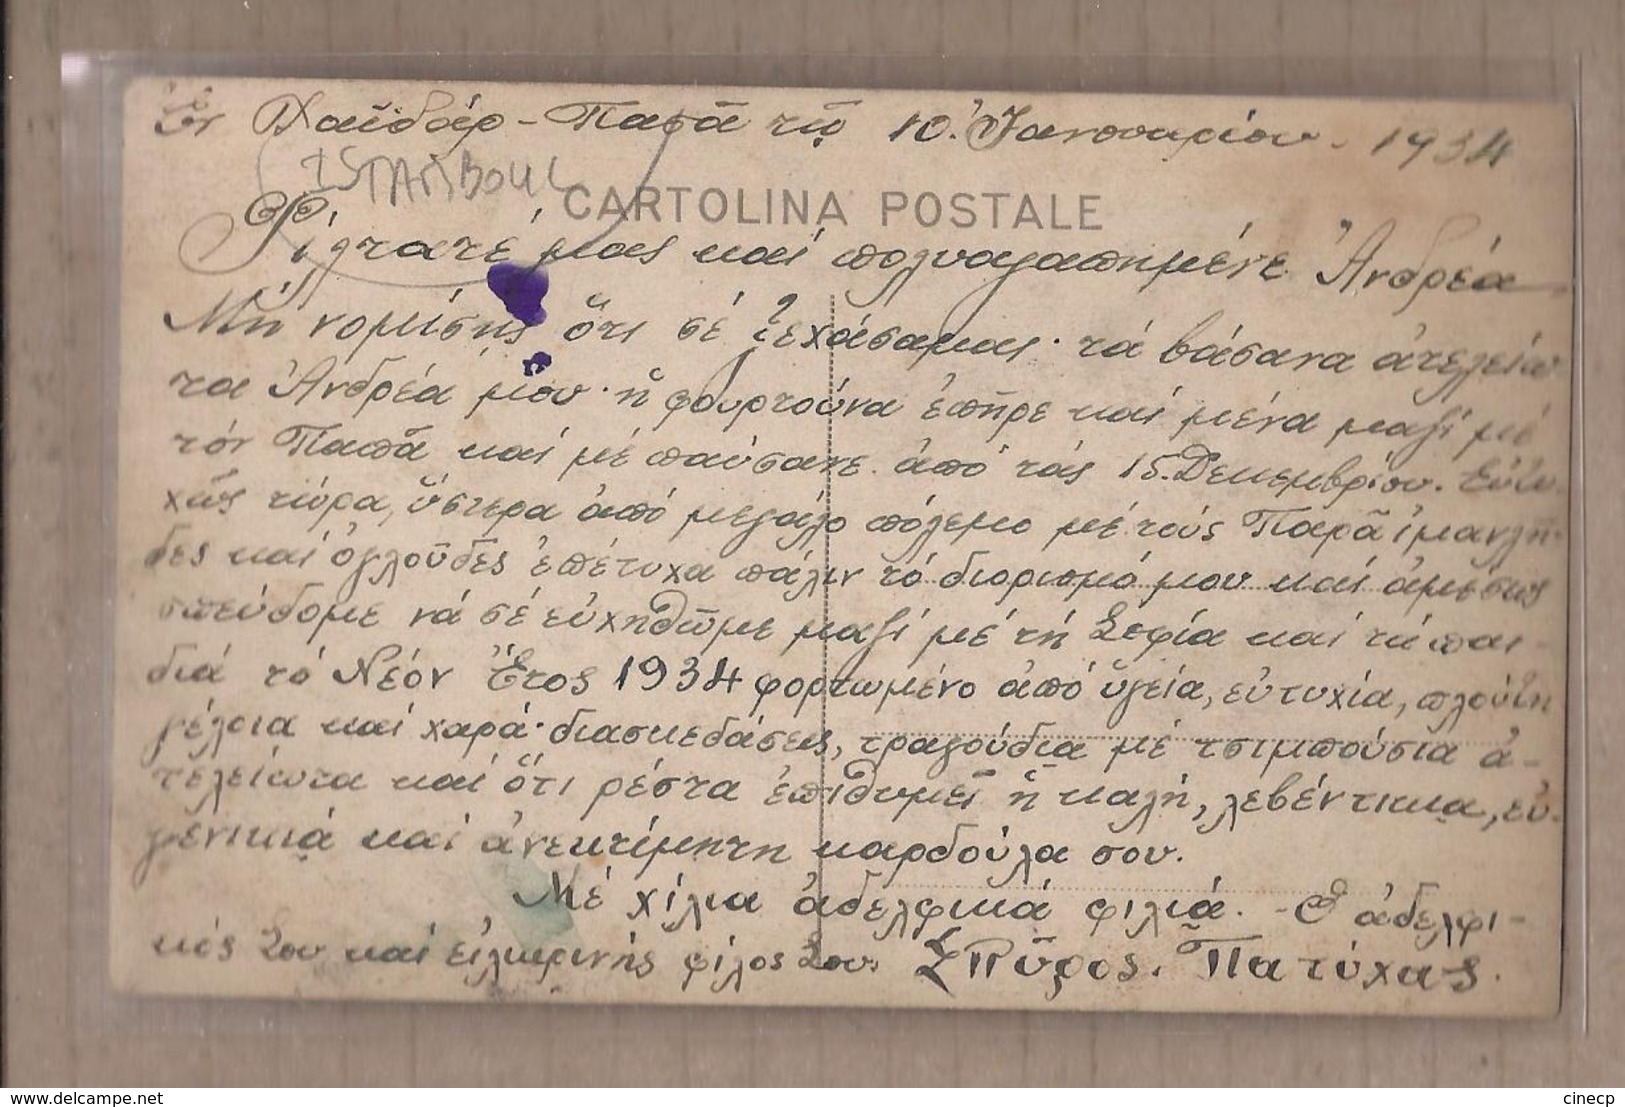 Ἐν Χαϊδάρ-Πασᾶ τῇ 10. Ἰανουαρίου. 1934
ISTAMBOUL
CARTOLINA POSTALE
Φίλτατέ μας καί πολυαγαπημένε Ἀνδρέα
Μή νομίσῃς ὅτι σέ ξεχάσαμαι· τά βάσανα ἀτελείω
τα Ἀνδρέα μου· ἡ φουρτούνα ἐπῆρε καί μένα μαζί μέ
τόν Παπᾶ καί μέ παύσανε ἀπό τάς 15. Δεκεμβρίου. Εὐτυ-
χῶς τώρα, ὕστερα ἀπό μεγάλο πόλεμο μέ τούς Παρᾶ
δες καί ὀγλοῦδες ἐπέτυχα πάλιν τό διορισμό μου καί ἀμέσως
σπεύδομε νά σέ εὐχηθῶμε μαζί μέ τή Σοφία καί τά παι-
διά τό Νέον Ἔτος 1934 φορτωμένο ἀπό ὑγεία, εὐτυχία, πλούτη
γέλοια καί χαρά· διασκεδάσεις, τραγούδια μέ τσιμπούσια ἀ-
τελείωτα καί ὅτι ρέστα ἐπιθυμεῖ ἡ καλή, λεβέντικια, εὐ-
γενικιά καί ἀνεκτίμητη καρδούλα σου.
Μέ χίλια ἀδελφικά φιλιά. - Ὁ ἀδελφι-
κός Σου καί εἰλικρινής φίλος Σου. Σπῦρος. Πατύχας.
cinecp
www.delcampe.net